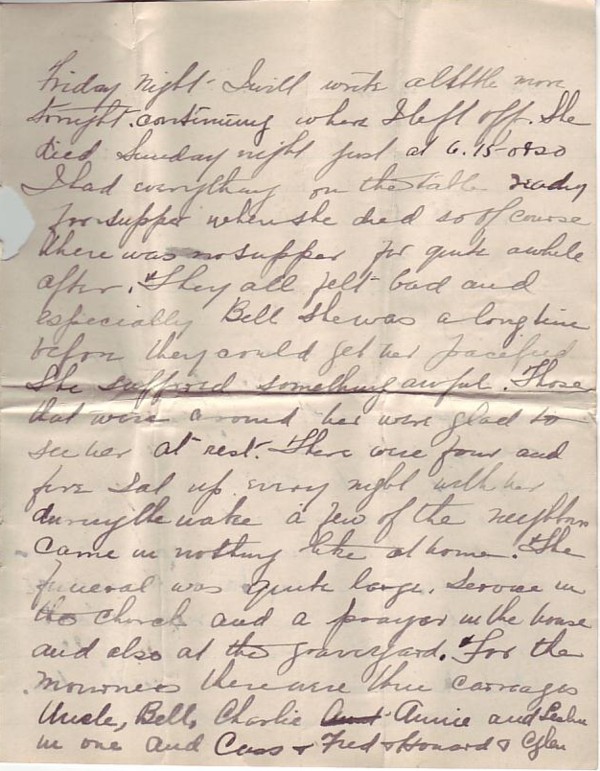 Friday night - I will write a little more
tonight. continuing where I left off. She
died Sunday night just at 6.15 - also
I had everything on the table ready
for supper when she died so of course
there was no supper for quite awhile
after. They all felt bad and
especially Bell she was a long time
before they could get her pacified
She suffered something awful. Those
that were around her were glad to
see her at rest. There were four and
five sat up every night with her
during the wake a few of the neighbors
came in nothing like at home. The
funeral was quite large. Service in
the church and a prayer in the house
and also at the graveyard. For the
mourners there were three carriages
Uncle, Bell, Charlie Aunt Annie and
in one and Cass + Fred + Howard +